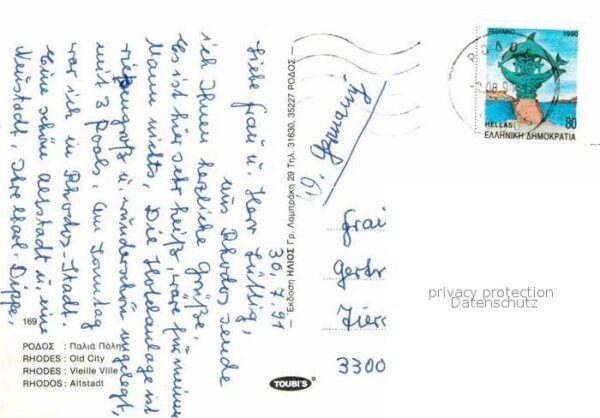 30.7.91
Liebe Frau u. Herr Lüttig,
aus Rhodos sende
ich Ihnen herzliche Grüße.
Es ist hier sehr heiß, wäre für meinen
Mann nichts. Die Hotelanlage ist
riesengroß u. wunderschön angelegt,
mit 3 Pools. Am Sonntag
war ich in Rhodos-Stadt.
Eine schöne Altstadt u. eine
Neustadt. Ihre
169
ΡΟΔΟΣ : Παλιά Πόλη
RHODES : Old City
RHODES : Vieille Ville
RHODOS : Altstadt
Έκδοση ΗΛΙΟΣ Γρ. Λαμπράκη 29 Τηλ. 31630, 35227 ΡΟΔΟΣ
TOUBI'S
W. Germany
Frau
Gertr
3300
ΡΕΘΥΜΝΟ 1990
HELLAS 80
ΕΛΛΗΝΙΚΗ ΔΗΜΟΚΡΑΤΙΑ
ΡΟΔΟ
privacy protection
Datenschutz